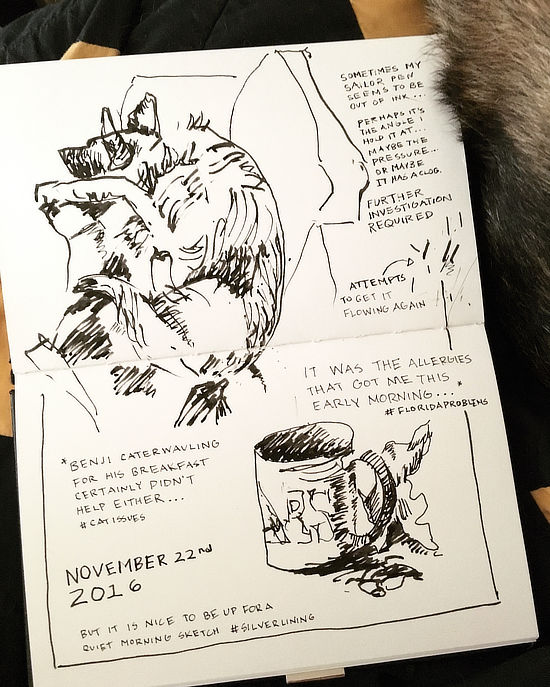 SOMETIMES MY
SAILOR PEN
SEEMS TO BE
OUT OF INK...
PERHAPS IT'S
THE ANGLE I
HOLD IT AT...
MAYBE THE
PRESSURE...
OR MAYBE
IT HAS A CLOG.
FURTHER
INVESTIGATION
REQUIRED
ATTEMPTS
TO GET IT
FLOWING AGAIN
IT WAS THE ALLERGIES
THAT GOT ME THIS
EARLY MORNING...*
#FLORIDAPROBLEMS
*BENJI CATERWAULING
FOR HIS BREAKFAST
CERTAINLY DIDN'T
HELP EITHER...
#CATISSUES
NOVEMBER 22nd
2016
BUT IT IS NICE TO BE UP FOR A
QUIET MORNING SKETCH #SILVERLINING